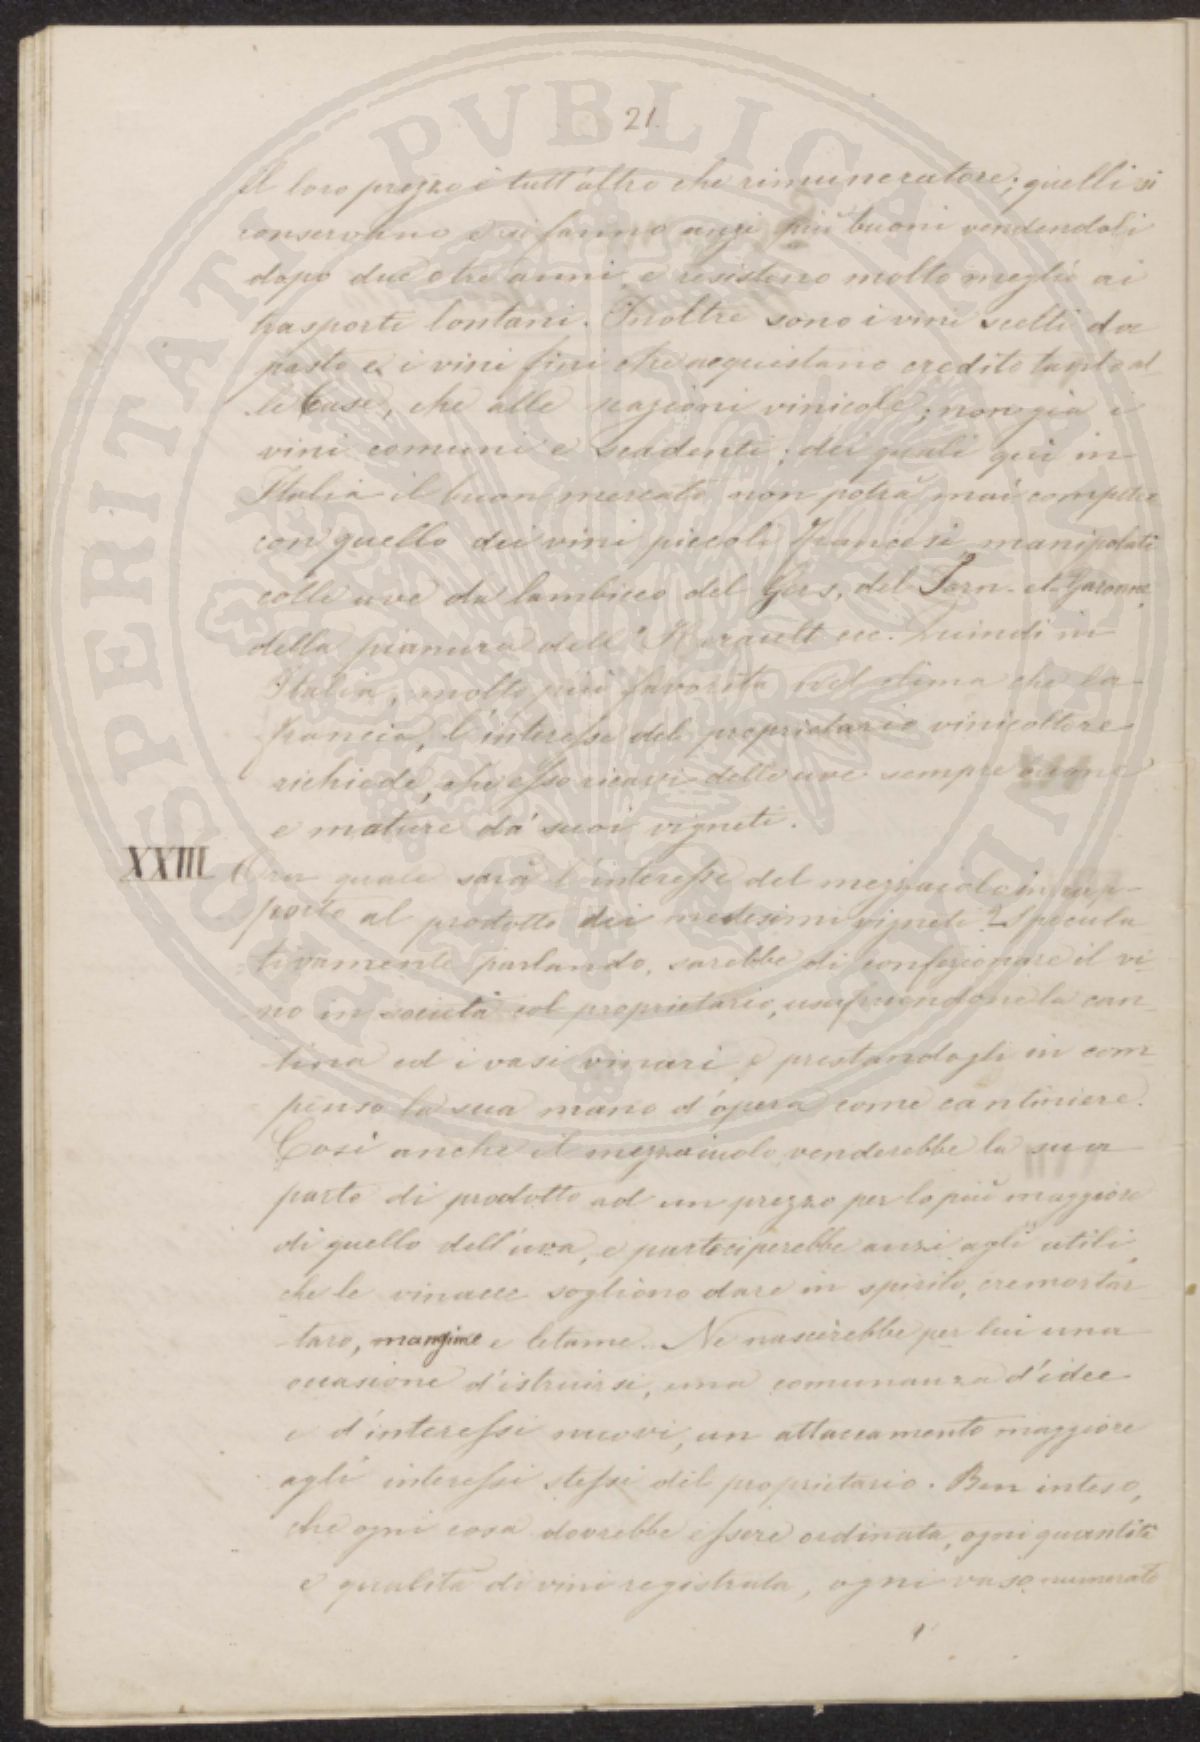 21.
il loro prezzo è tutt'altro che rimuneratore; quelli si
conservano e si fanno anzi più buoni vendendoli
dopo due o tre anni, e resistono molto meglio ai
trasporti lontani. Inoltre sono i vini scelti da
pasto e i vini fini che acquistano credito tanto al-
le Case, che alle regioni vinicole; non già i
vini comuni e scadenti; dei quali qui in
Italia il buon mercato non potrà mai competere
con quello dei vini piccoli francesi manipolati
colle uve da lambicco del Gers, del Tarn et Garonne,
della pianura dell'Herault ecc. Quindi in
Italia, molto più favorita nel clima che la
Francia, l'interesse del proprietario vinicoltore
richiede, che esso ricavi delle uve sempre buone
e mature da' suoi vigneti.
XXIII Ora quale sarà l'interesse del mezzaiolo in rap-
porto al prodotto dei medesimi vigneti? Specula-
tivamente parlando, sarebbe di confezionare il vi-
no in società col proprietario, usufruendone la can-
tina ed i vasi vinari e prestandogli in com-
penso la sua mano d'opera come cantiniere.
Così anche il mezzaiuolo venderebbe la sua
parte di prodotto ad un prezzo per lo più maggiore
di quello dell'uva, e parteciperebbe anzi agli utili,
che le vinacce sogliono dare in spirito, cremortar-
taro, mangime e letame. Ne nascirebbe per lui una
occasione d'istruirsi, una comunanza d'idee
e d'interessi nuovi, un attaccamento maggiore
agli interessi stessi del proprietario. Ben inteso,
che ogni cosa dovrebbe essere ordinata, ogni quantità
e qualità di vini registrata, ogni vaso numerato
PVBLICAE
PROSPERITATI